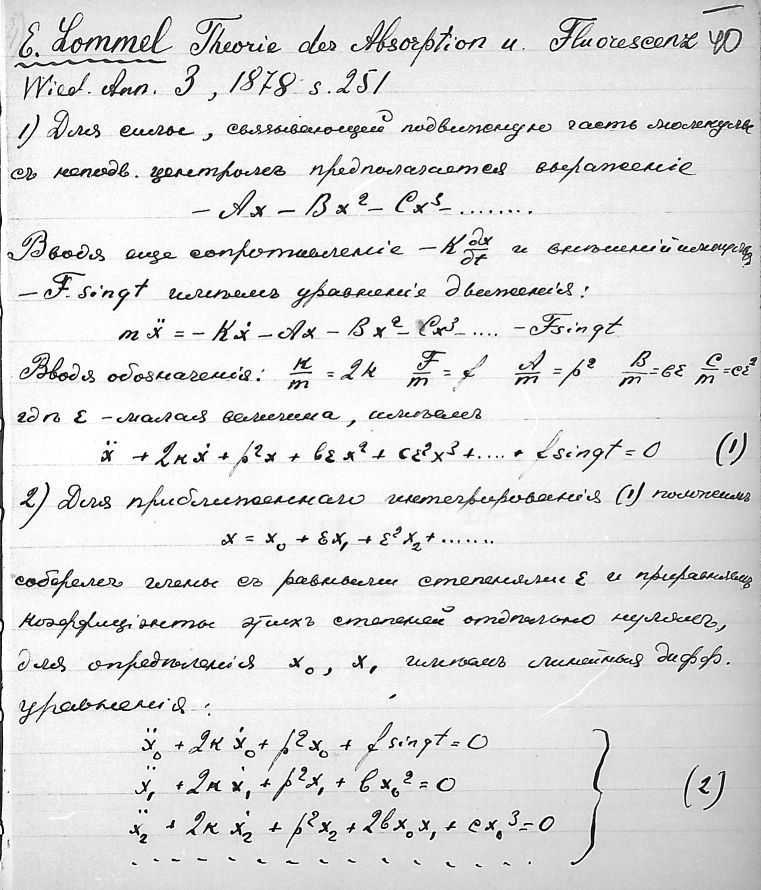 E. Lommel Theorie der Absorption u. Fluorescenz 40
Wied. Ann. 3, 1878 s. 251
1) Для силы, связывающей подвижную часть молекулы
съ неподв. центромъ предполагается выраженіе
– Ax – Bx² – Cx³ – ........
Вводя еще сопротивленіе – K dx/dt и внѣшній импульсъ
– F. sin qt имѣемъ уравненіе движенія:
m ẍ = – Kẋ – Ax – Bx² – Cx³ – .... – F sin qt
Вводя обозначенія: K/m = 2k F/m = f A/m = p² B/m = bε C/m = cε²
гдѣ ε – малая величина, имѣемъ
ẍ + 2kẋ + p²x + bεx² + cε²x³ + .... + f sin qt = 0 (1)
2) Для приближеннаго интегрированія (1) положимъ
x = x₀ + εx₁ + ε²x₂ + ......
соберемъ члены съ равными степенями ε и приравняемъ
коэффиціэнты этихъ степеней отдѣльно нулямъ,
для опредѣленія x₀, x₁ имѣемъ линейныя дифф.
уравненія:
ẍ₀ + 2kẋ₀ + p²x₀ + f sin qt = 0
ẍ₁ + 2kẋ₁ + p²x₁ + bx₀² = 0
ẍ₂ + 2kẋ₂ + p²x₂ + 2bx₀x₁ + cx₀³ = 0 (2)
. . . . . . . . . . . . . . . .